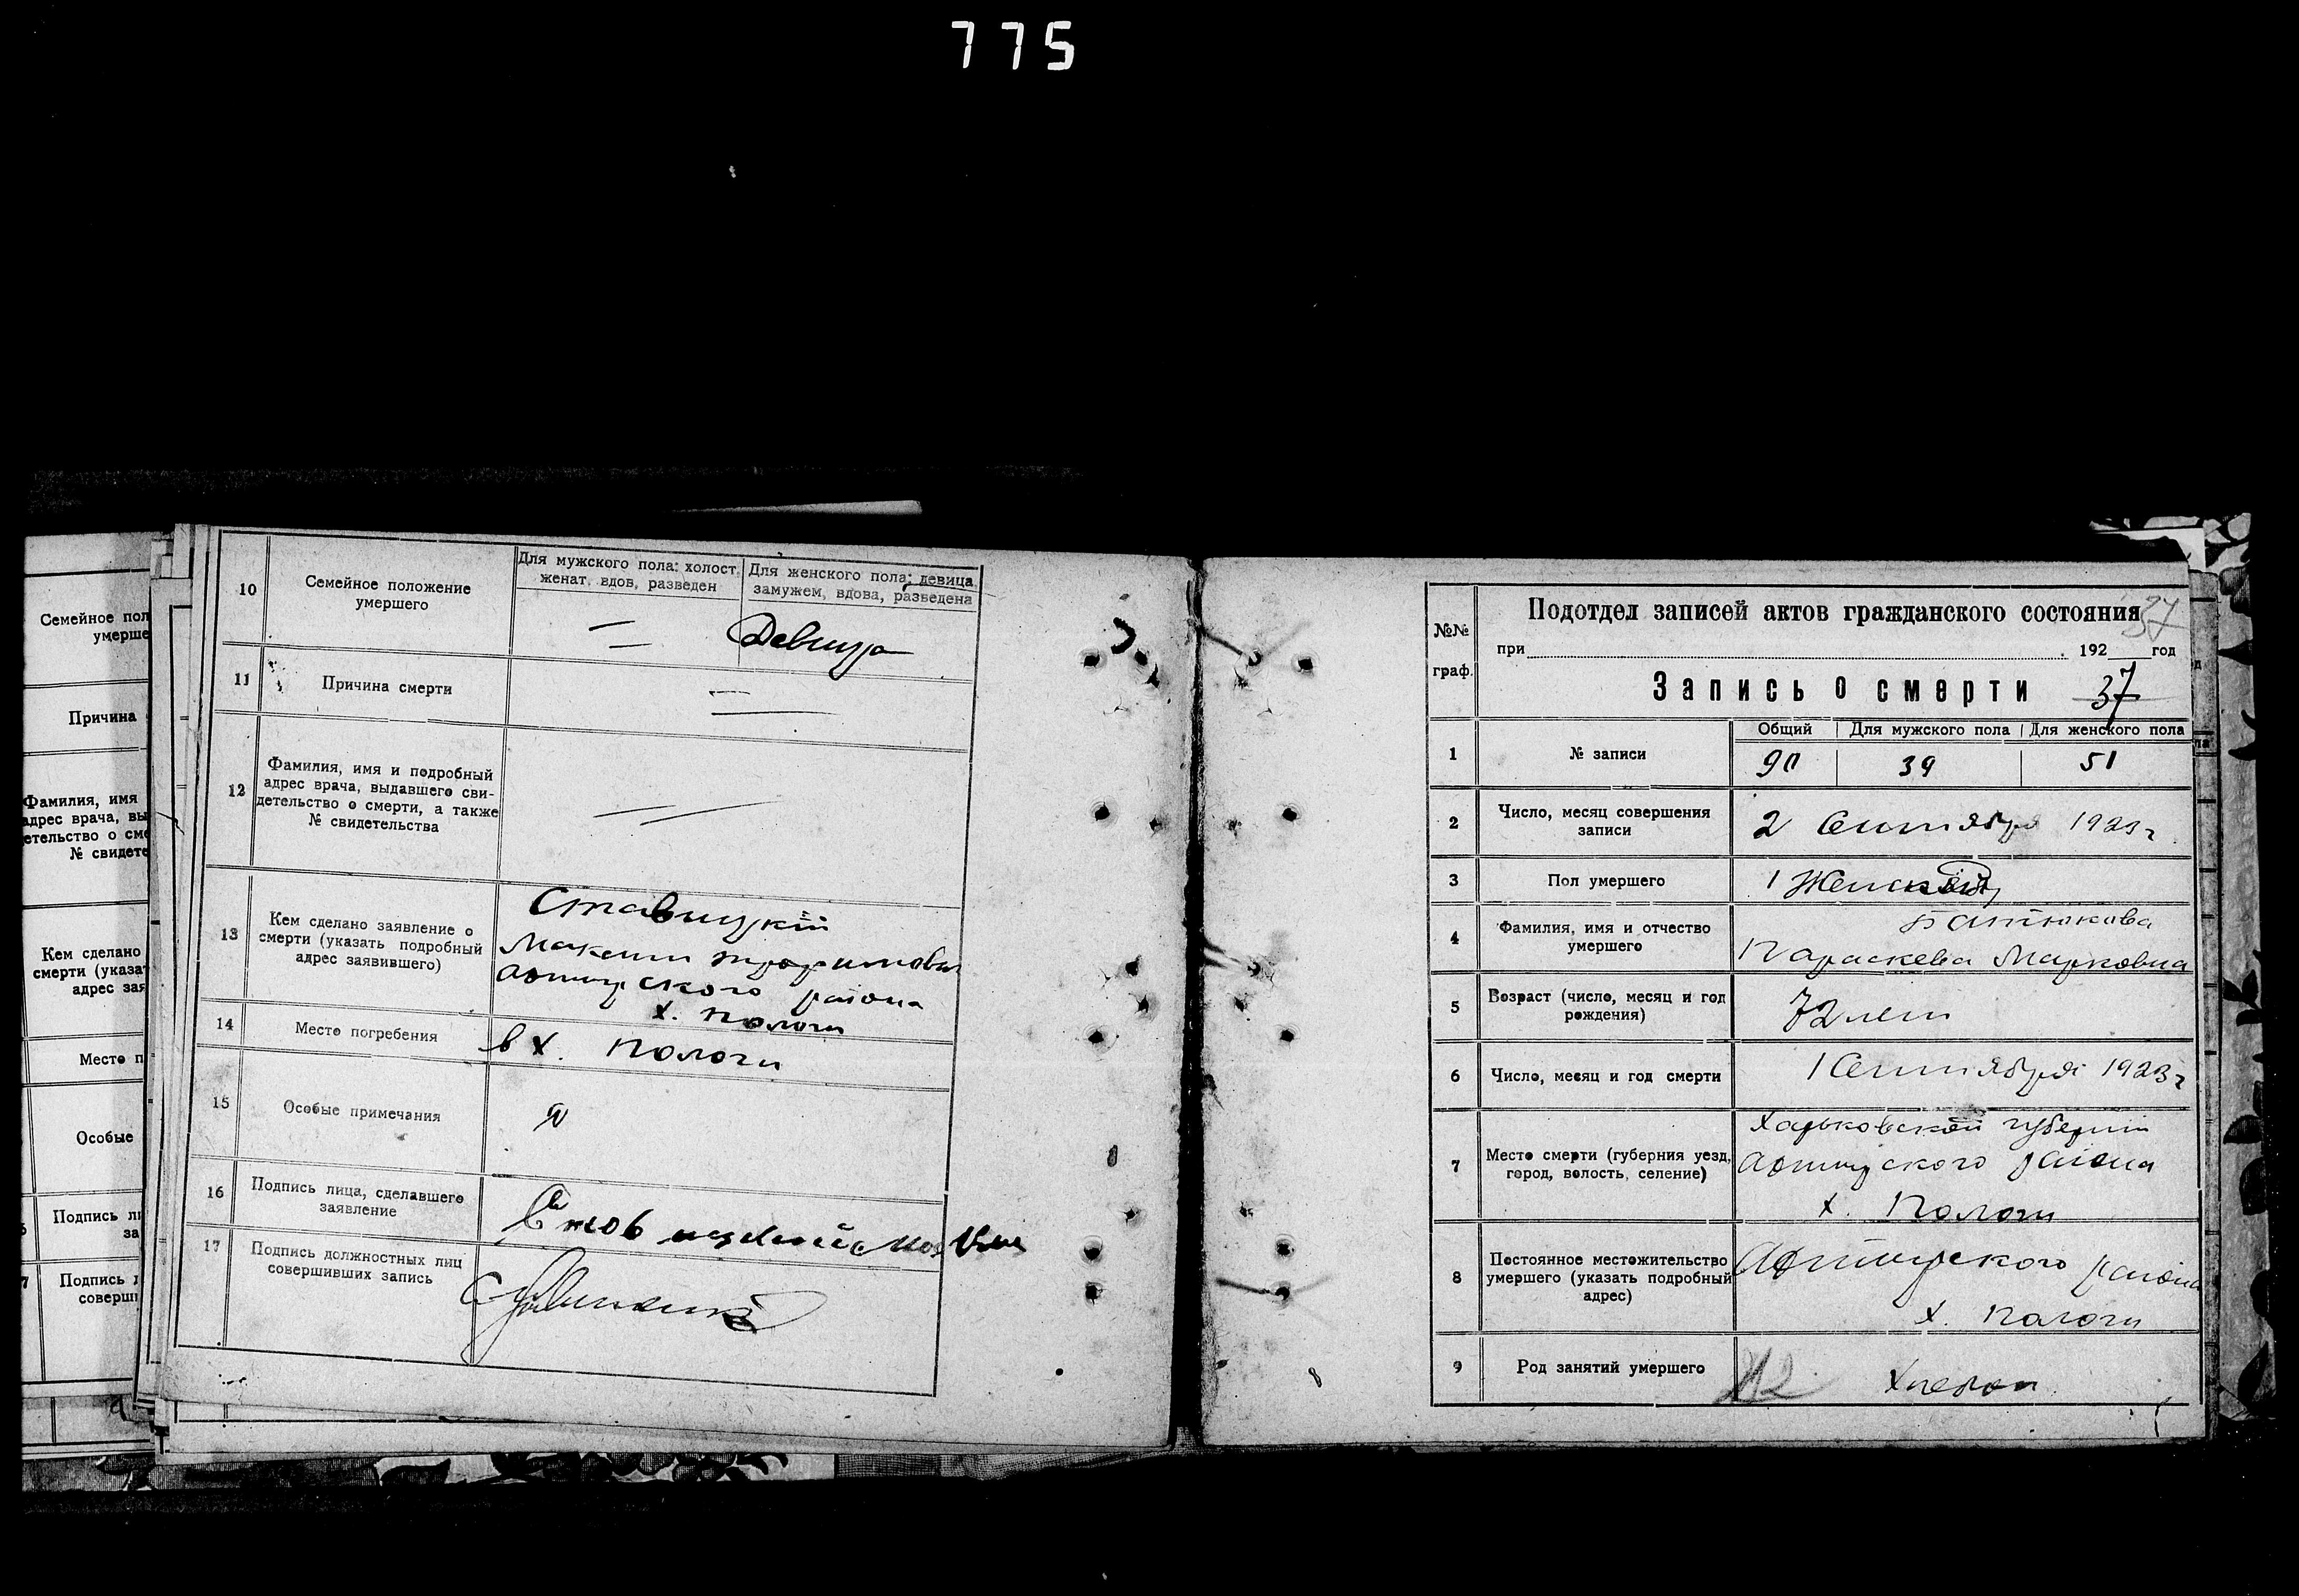 775
Семейное пол
умерше
Причина
Фамилия, имя
адрес врача, вы
етельство о сме
№ свидете
Кем сделано
смерти (указат
адрес зая
Место п
Особые
Подпись ли
за
7 Подпись д
соверши
10 Семейное положение умершего
Для мужского пола: холост, женат, вдов, разведен
Для женского пола: девица, замужем, вдова, разведена
— — Девица
11 Причина смерти
—
12 Фамилия, имя и подробный
адрес врача, выдавшего сви-
детельство о смерти, а также
№ свидетельства
13 Кем сделано заявление о
смерти (указать подробный
адрес заявившего)
Ставицкій
Максим
района
х. Пологи
14 Место погребения
в х. Пологи
15 Особые примечания
16 Подпись лица, сделавшего
заявление
17 Подпись должностных лиц
совершивших запись
№№
граф.
Подотдел записей актов гражданского состояния 37
при 192 год
Запись о смерти 37
Общий Для мужского пола Для женского пола
1 № записи 90 39 51
2 Число, месяц совершения
записи
2 Сентября 1923 г
3 Пол умершего 1 Женский
4 Фамилия, имя и отчество
умершего
Батюкова
Параскева Марковна
5 Возраст (число, месяц и год
рождения)
72 лет
6 Число, месяц и год смерти 1 Сентября 1923 г
7 Место смерти (губерния уезд,
город, волость, селение)
Харьковской губернии
района
х. Пологи
8 Постоянное местожительство
умершего (указать подробный
адрес)
района
х. Пологи
9 Род занятий умершего